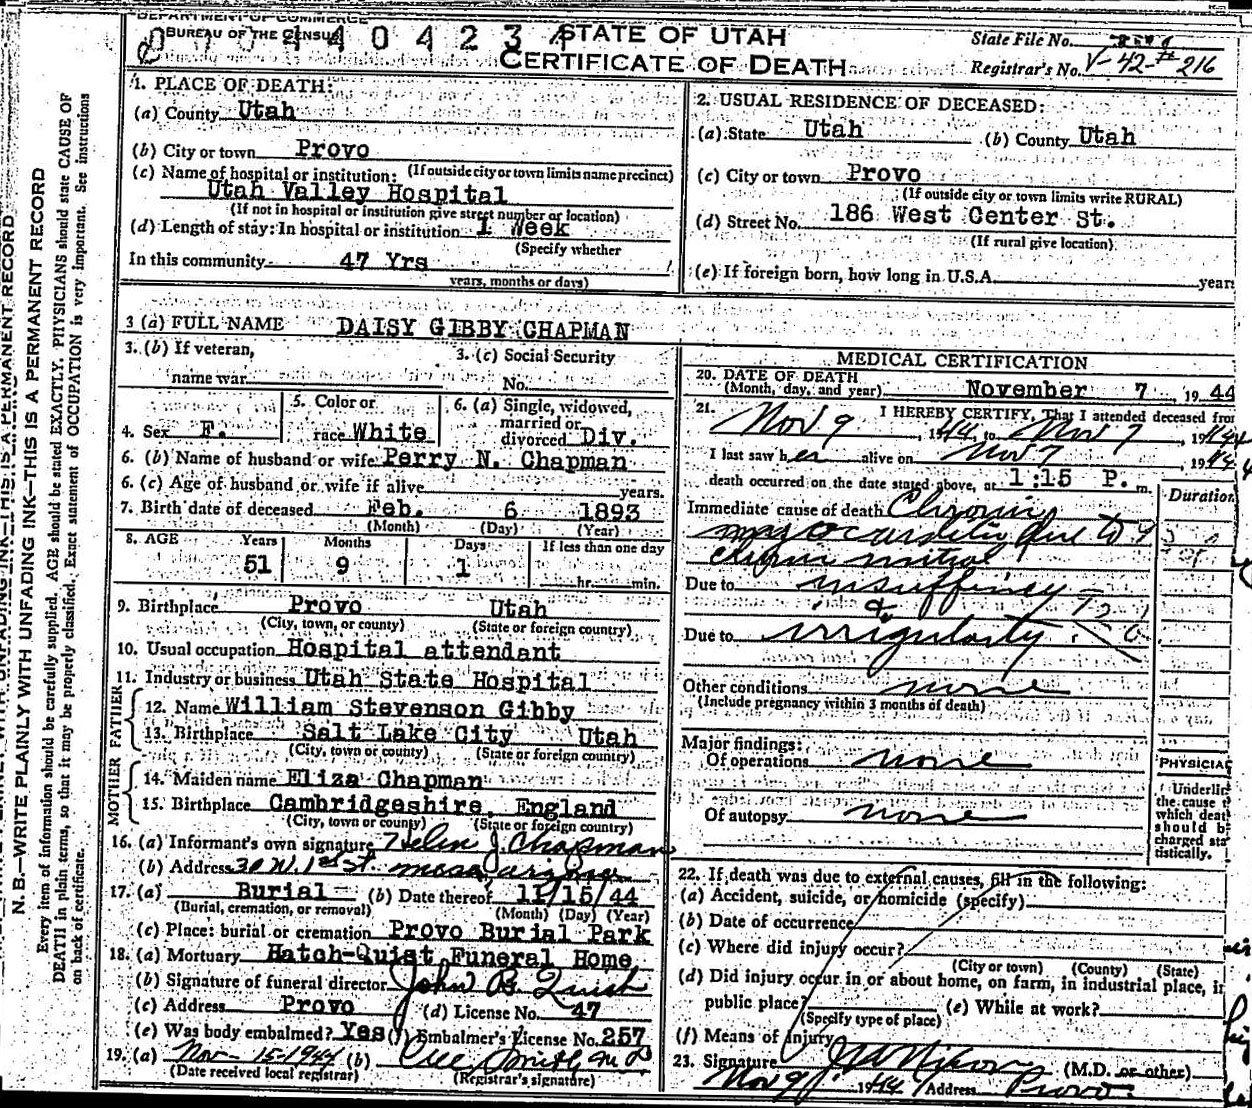 DEPARTMENT OF COMMERCE
BUREAU OF THE CENSUS
STATE OF UTAH
CERTIFICATE OF DEATH
State File No.
Registrar's No. V-42-# 216
N. B.—WRITE PLAINLY WITH UNFADING INK—THIS IS A PERMANENT RECORD
Every item of information should be carefully supplied. AGE should be stated EXACTLY. PHYSICIANS should state CAUSE OF
DEATH in plain terms, so that it may be properly classified. Exact statement of OCCUPATION is very important. See instructions
on back of certificate.
1. PLACE OF DEATH:
(a) County Utah
(b) City or town Provo
(If outside city or town limits name precinct)
(c) Name of hospital or institution:
Utah Valley Hospital
(If not in hospital or institution give street number or location)
(d) Length of stay: In hospital or institution 1 Week
(Specify whether
In this community 47 Yrs
years, months or days)
2. USUAL RESIDENCE OF DECEASED:
(a) State Utah (b) County Utah
(c) City or town Provo
(If outside city or town limits write RURAL)
(d) Street No. 186 West Center St.
(If rural give location)
(e) If foreign born, how long in U.S.A. years
3 (a) FULL NAME DAISY GIBBY CHAPMAN
3. (b) If veteran,
name war
3. (c) Social Security
No.
4. Sex F.
5. Color or
race White
6. (a) Single, widowed,
married or
divorced Div.
6. (b) Name of husband or wife Perry N. Chapman
6. (c) Age of husband or wife if alive years.
7. Birth date of deceased Feb. 6 1893
(Month) (Day) (Year)
8. AGE Years Months Days If less than one day
51 9 1 hr. min.
9. Birthplace Provo Utah
(City, town, or county) (State or foreign country)
10. Usual occupation Hospital attendant
11. Industry or business Utah State Hospital
FATHER
12. Name William Stevenson Gibby
13. Birthplace Salt Lake City Utah
(City, town or county) (State or foreign country)
MOTHER
14. Maiden name Eliza Chapman
15. Birthplace Cambridgeshire, England
(City, town or county) (State or foreign country)
16. (a) Informant's own signature Helen J. Chapman
(b) Address 30 W. 1st St. mesa arizona
17. (a) Burial (b) Date thereof 11/15/44
(Burial, cremation, or removal) (Month) (Day) (Year)
(c) Place: burial or cremation Provo Burial Park
18. (a) Mortuary Hatch-Quist Funeral Home
(b) Signature of funeral director John B. Quist
(c) Address Provo (d) License No. 47
(e) Was body embalmed? Yes (f) Embalmer's License No. 257
19. (a) Nov- 15-1944 (b) Smith M D
(Date received local registrar) (Registrar's signature)
MEDICAL CERTIFICATION
20. DATE OF DEATH
(Month, day, and year) November 7, 1944
21. I HEREBY CERTIFY, That I attended deceased from
Nov 9, 1944, to Nov 7, 1944
I last saw her alive on Nov 7, 1944
death occurred on the date stated above, at 1:15 P. m.
Duration
Immediate cause of death Chronic
myocarditis due to
mitral
Due to insufficiency
&
Due to irrigularity
Other conditions none
(Include pregnancy within 3 months of death)
Major findings:
Of operations none
Of autopsy none
PHYSICIAN
Underline
the cause
which death
should be
charged sta
tistically.
22. If death was due to external causes, fill in the following:
(a) Accident, suicide, or homicide (specify)
(b) Date of occurrence
(c) Where did injury occur?
(City or town) (County) (State)
(d) Did injury occur in or about home, on farm, in industrial place, in
public place? (e) While at work?
(Specify type of place)
(f) Means of injury
23. Signature (M.D. or other)
Nov 9 1944 Address Provo.